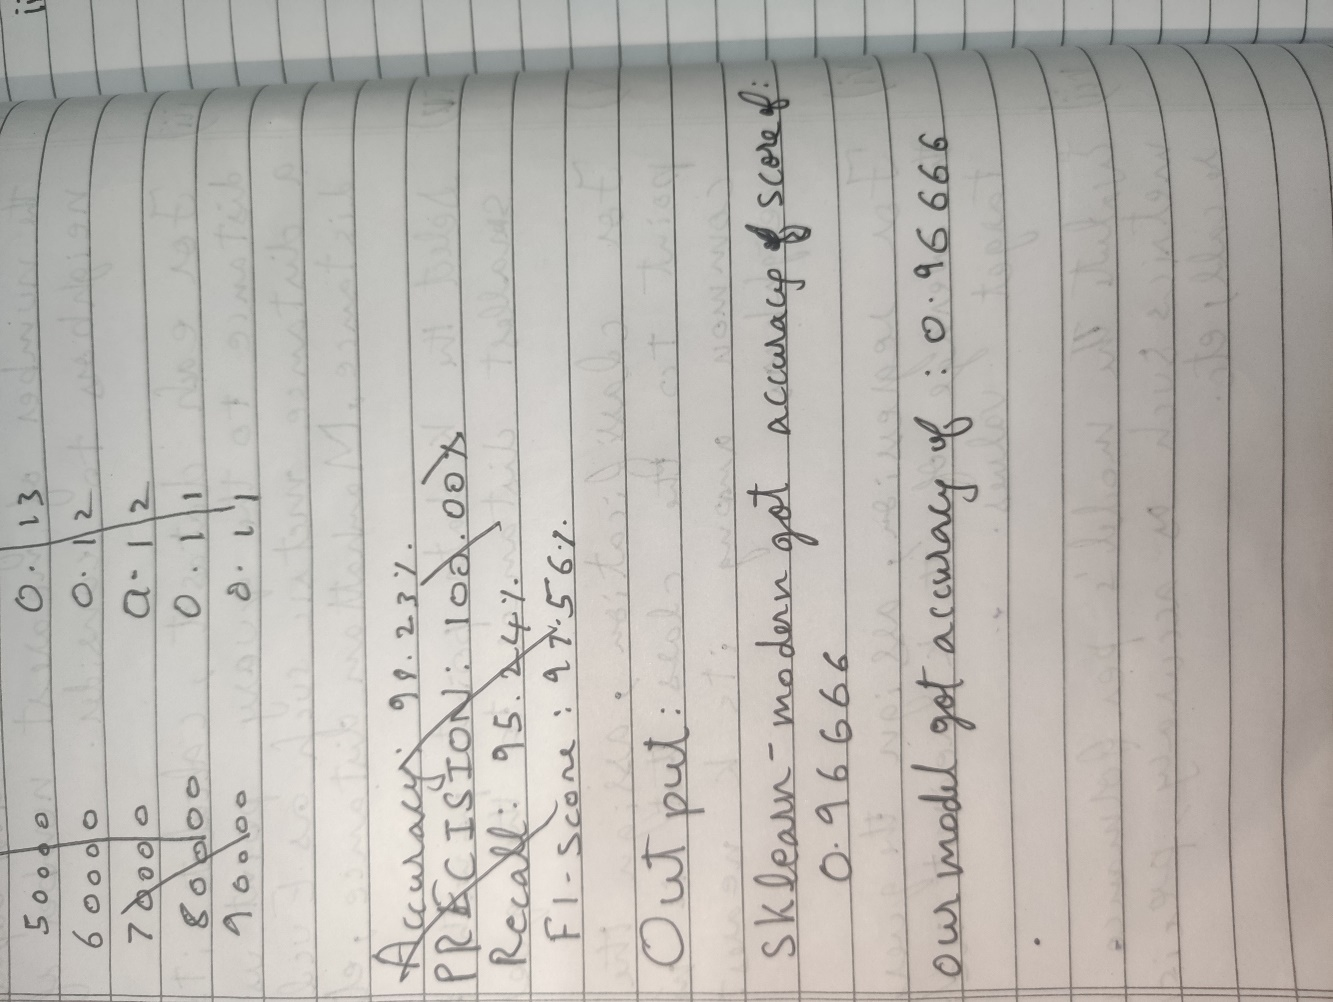 50000 0.13
60000 0.12
70000 0.12
80000 0.11
90000 0.11
Accuracy: 98.23%.
PRECISION: 100.00%
Recall: 95.24%.
F1-Score: 97.56%.
Output:
Sklearn-modern got accuracy score of:
0.96666
our model got accuracy of: 0.96666